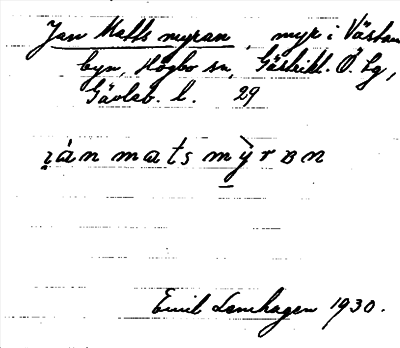 Jan Matts myran, myr i Västan
byn, Högbo sn, Gästrikl. Ö. hg,
Gävleb. l. 29
ꞁán mats mỳrɐn
Emil Lamhagen 1930.